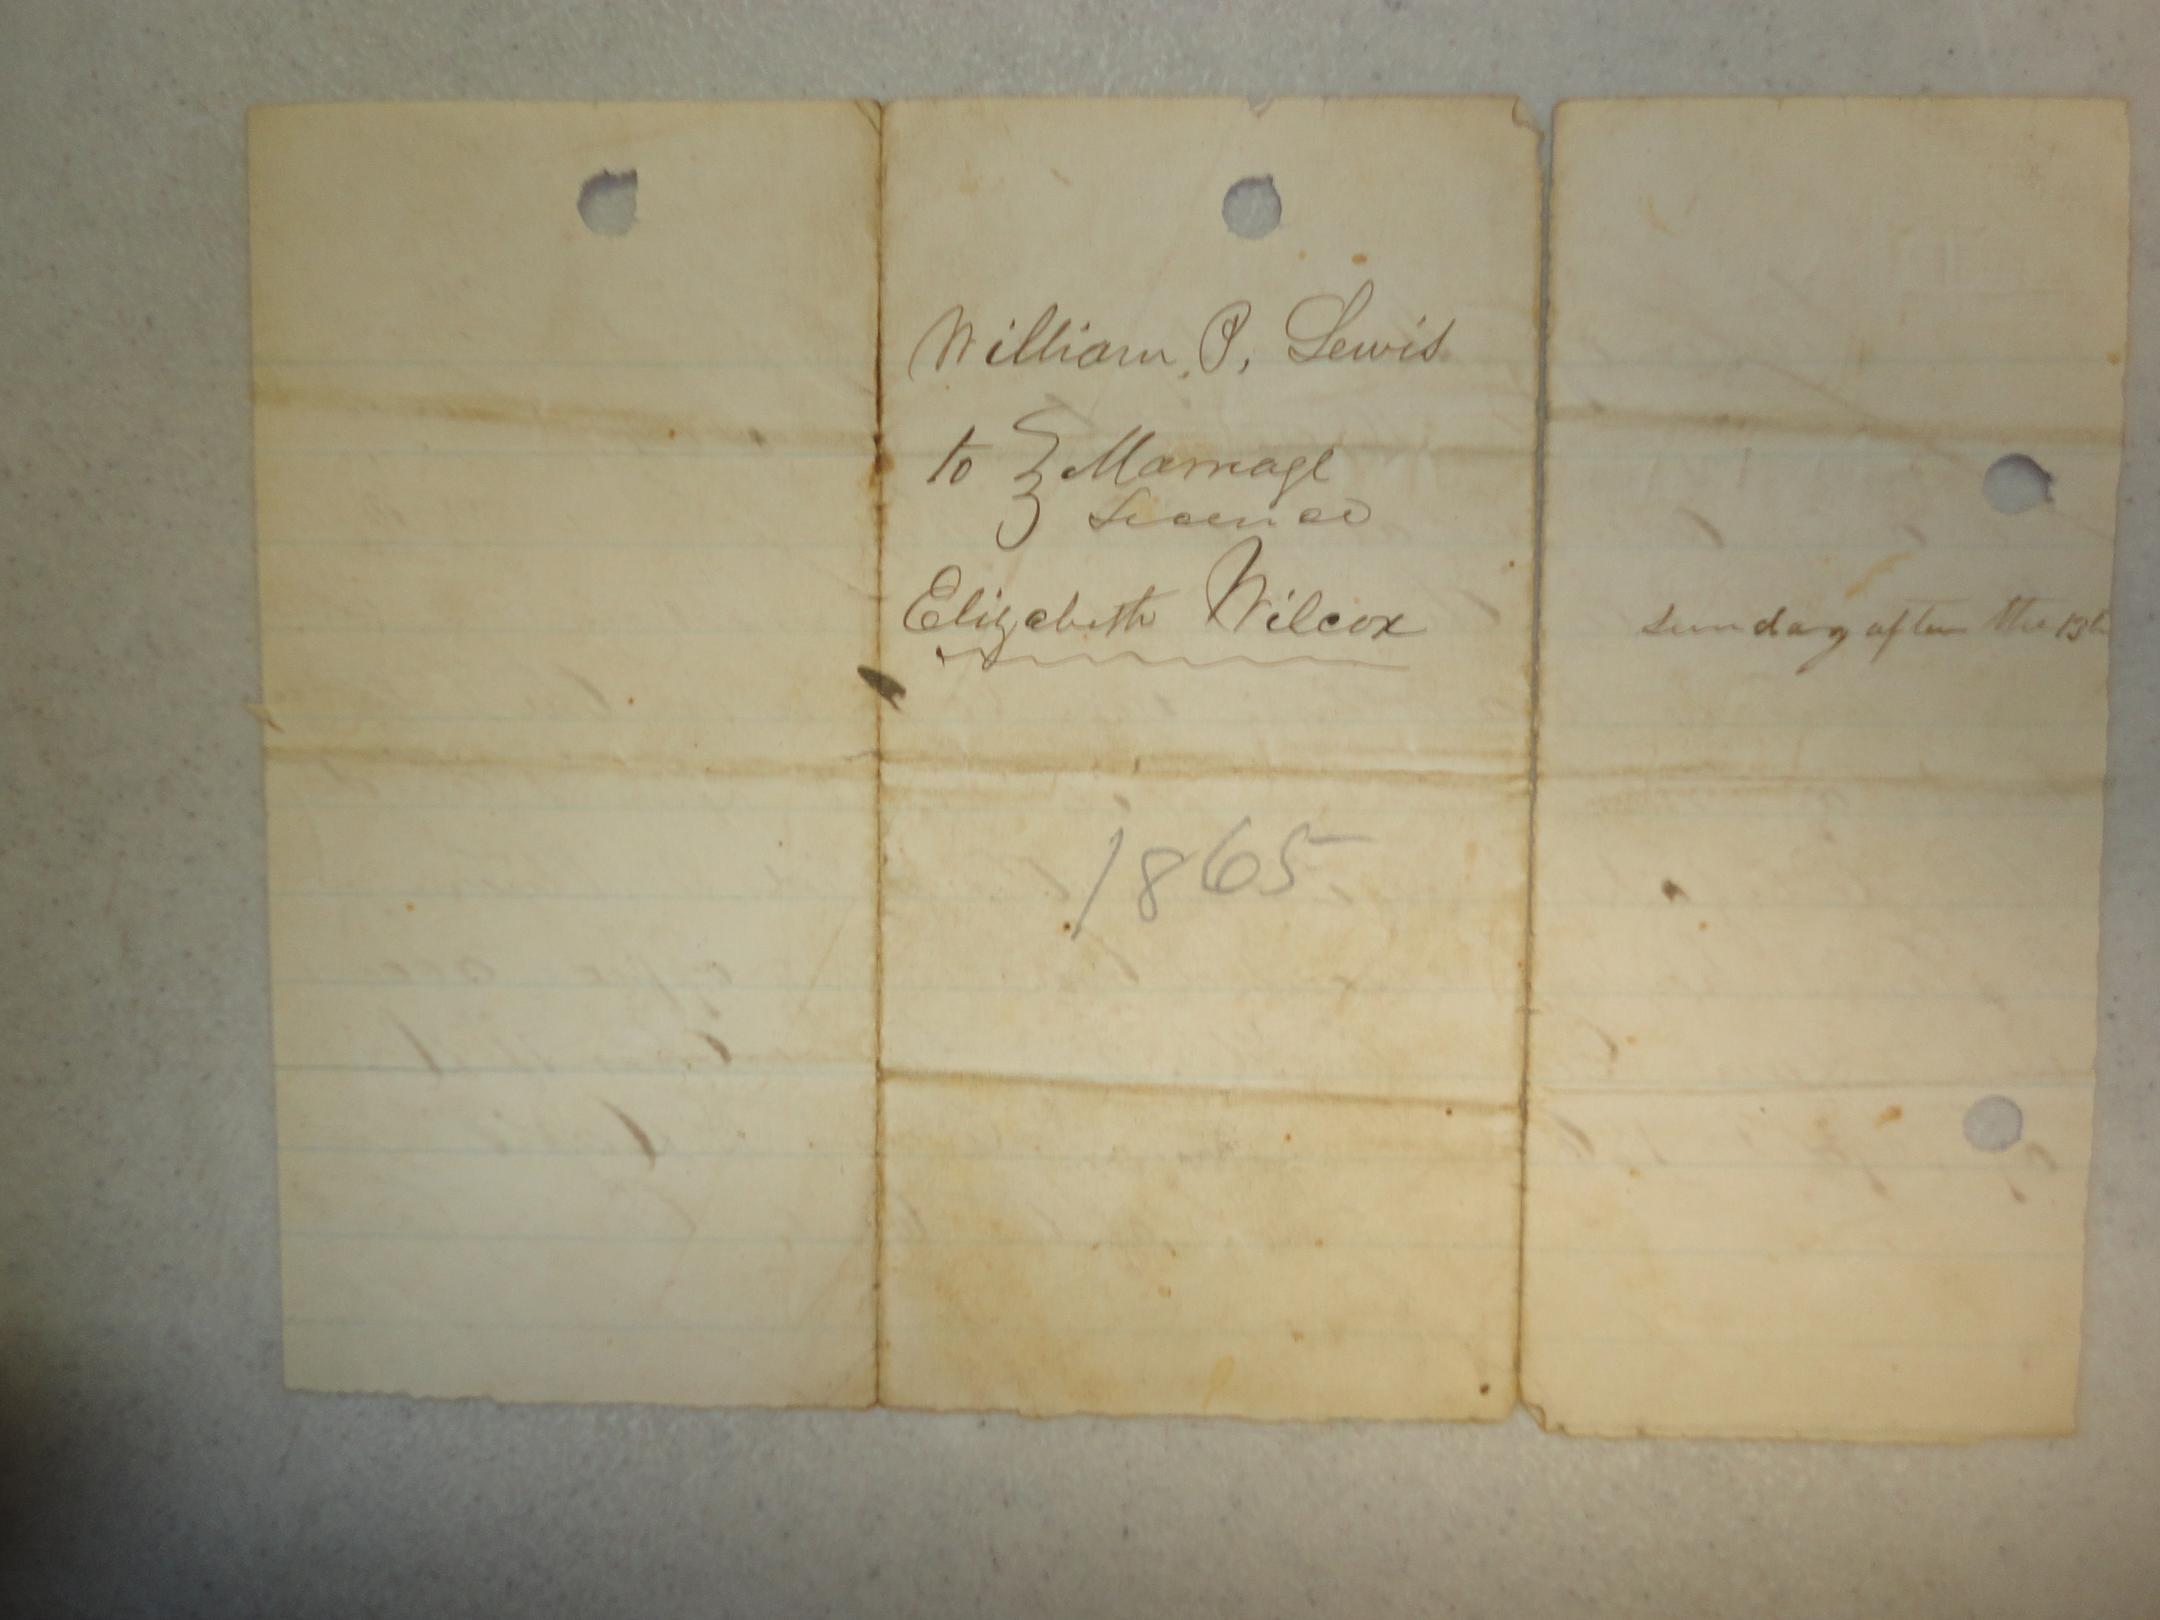 William P. Lewis
to Marriage
Licence
Elizabeth Wilcox
1865
Sunday after the 13th